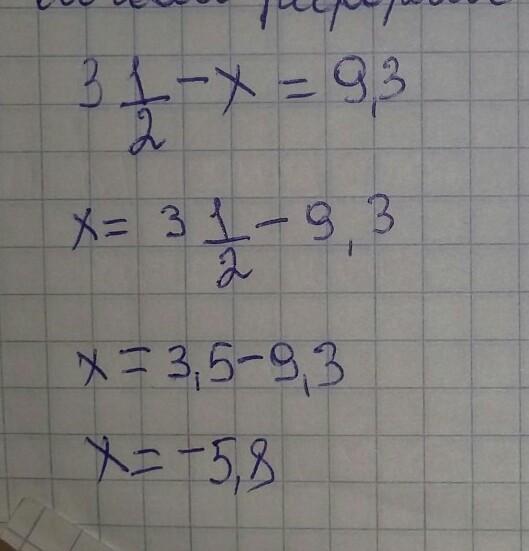 3 1/2 - x = 9,3
x = 3 1/2 - 9,3
x = 3,5 - 9,3
x = -5,8